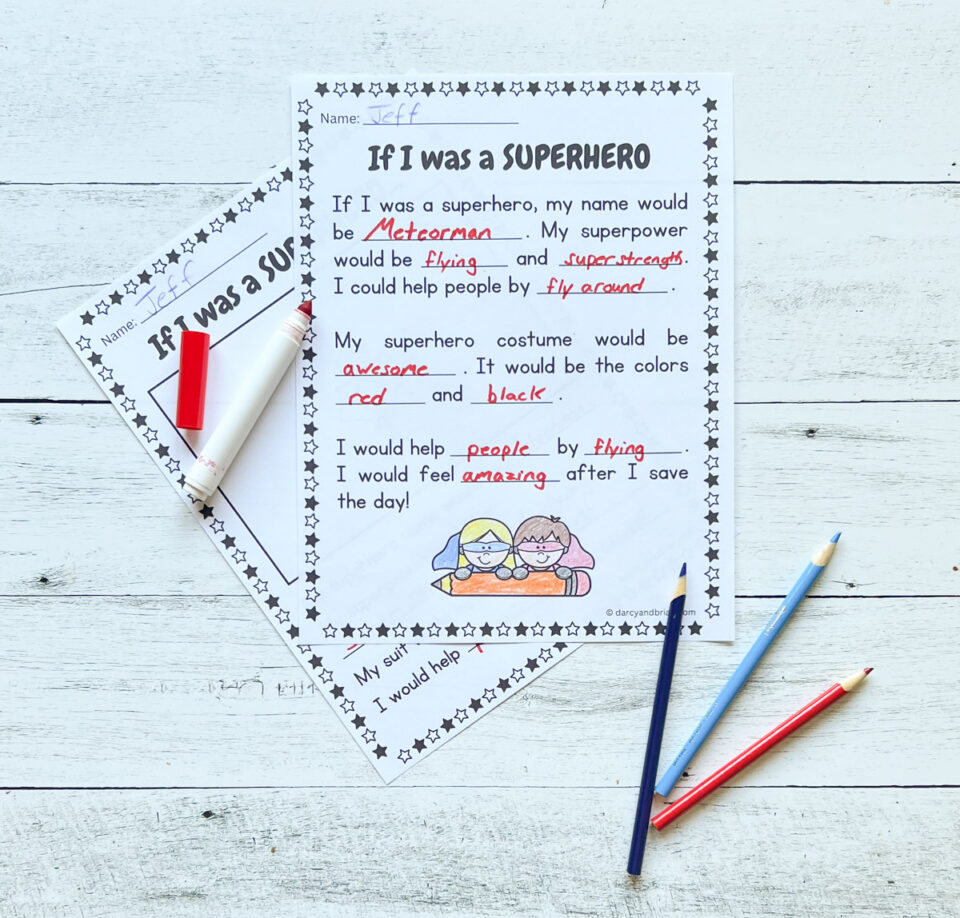 Name: Jeff
If I was a SUPERHERO
If I was a superhero, my name would
be Meteorman . My superpower
would be flying and superstrength.
I could help people by fly around .
My superhero costume would be
awesome . It would be the colors
red and black .
I would help people by flying .
I would feel amazing after I save
the day!
Name: Jeff
If I was a SUP
My suit
I would help